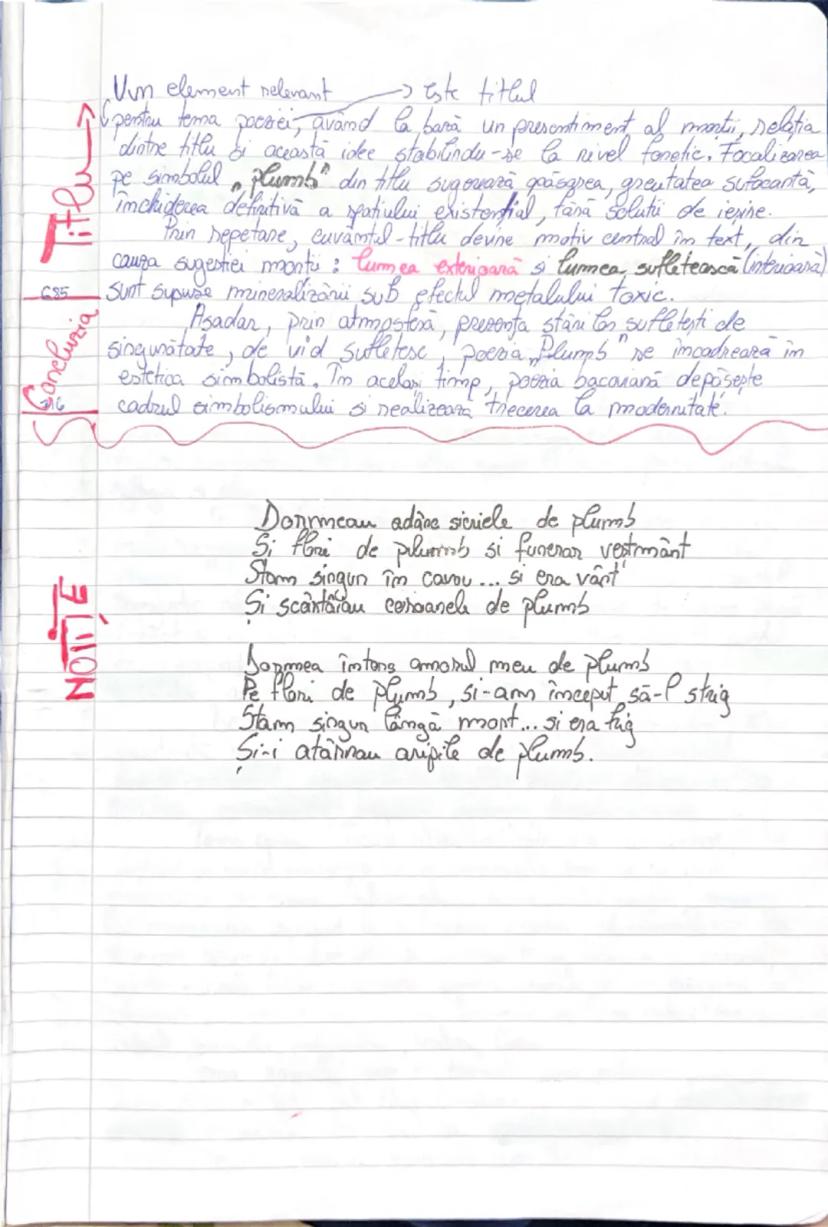 Un element relevant → Este titlul
pentru tema poeziei, având la bază un presentiment al morții, relația
dintre titlu și această idee stabilindu-se la nivel fonetic. Focalizarea
pe simbolul „plumb" din titlu sugerează apăsarea, greutatea sufocantă,
închiderea definitivă a spațiului existențial, fără soluții de ieșire.
Titlu
Prin repetare, cuvântul-titlu devine motiv central în text, din
cauza sugestiei morții: lumea exterioară și lumea sufletească (interioară)
sunt supuse mineralizării sub efectul metalului toxic.
685
Așadar, prin atmosferă, prezența stărilor sufletești de
singurătate, de vid sufletesc, poezia „Plumb" se încadrează în
estetica simbolistă. În același timp, poezia bacoviană depășește
cadrul simbolismului și realizează trecerea la modernitate.
Concluzia
Dormeau adânc sicriele de plumb
Și flori de plumb si funerar vestmânt
Stam singur în cavou... si era vânt
Și scârțâiau coroanele de plumb
NOTIȚE
Dormea întors amorul meu de plumb
Pe flori de plumb, si-am început să-l strig
Stam singur lângă mort... si era frig
Și-i atârnau aripile de plumb.